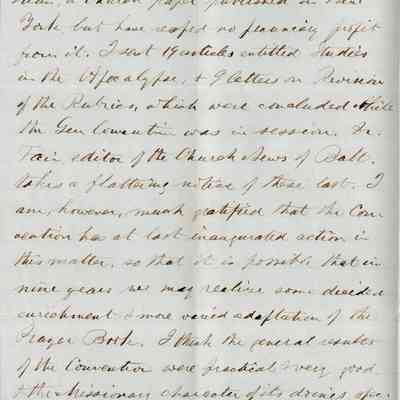 a church paper published in New
York but have reaped no pecuniary profit
from it. I sent 19 articles entitled Studies
in the Apocalypse, & 9 letters on Revision
of the Rubrics, which were concluded while
the Gen Convention was in session. Dr.
Fair, editor of the Church News of Balt.
takes a flattering notice of these last. I
am, however, much gratified that the Con
vention has at last inaugurated action in
this matter, so that it is possible that in
nine years we may realize some decided
enrichment & more varied adaptation of the
Prayer Book. I think the general results
of the Convention were practical & very good
& the Missionary character of its doings